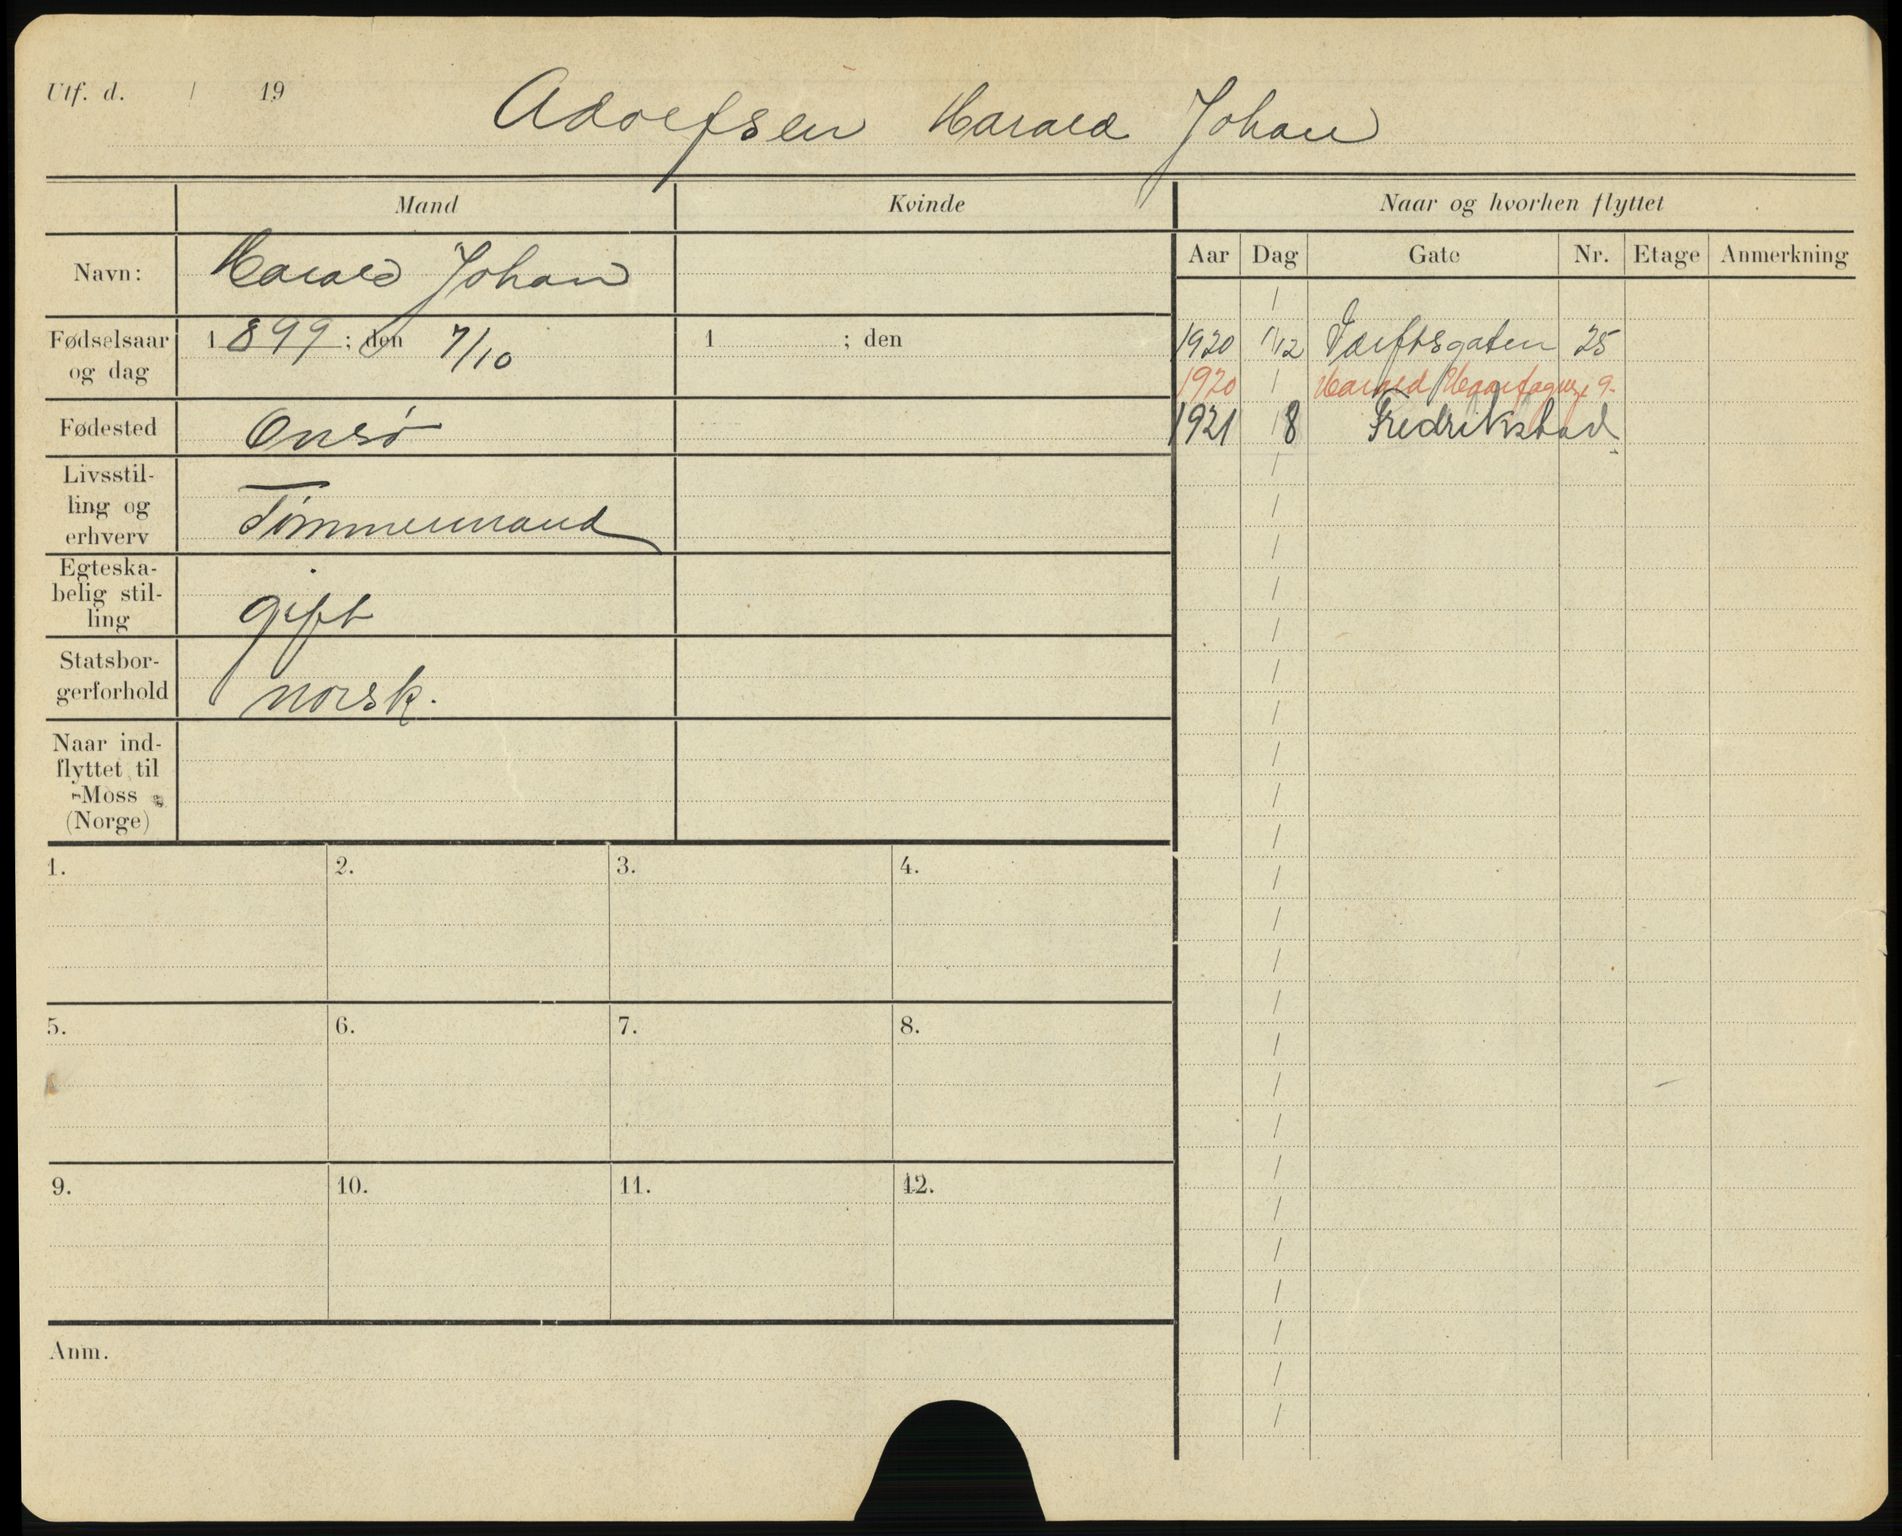 Utf. d. / 19
Adolfsen Harald Johan
Mand
Kvinde
Naar og hvorhen flyttet
Aar Dag Gate Nr. Etage Anmerkning
Navn: Harald Johan
Fødselsaar og dag 1899; den 7/10
1 ; den
Fødested Onsø
Livsstil-
ling og
erhverv
Tømmermand
Egteska-
belig stil-
ling
gift
Statsbor-
gerforhold
norsk.
Naar ind-
flyttet til
Moss
(Norge)
1920 1/12 Værftsgaten 25
1920 / Harald Haarfagresg. 9.
1921 /8 Fredrikstad
1. 2. 3. 4.
5. 6. 7. 8.
9. 10. 11. 12.
Anm.